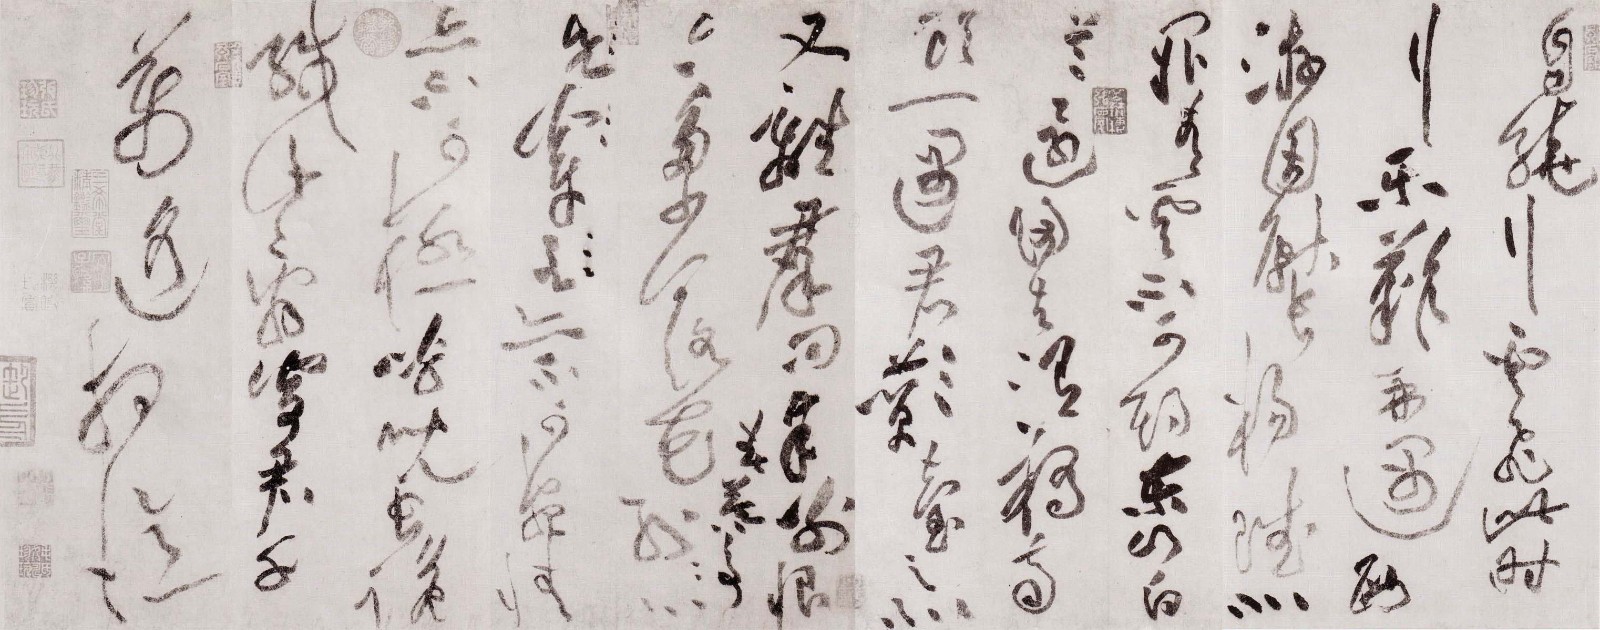 自繞行雲飛此時
行樂難再遇西
游因獻長楊賦北
闕青雲不可期東山白
首還歸去渭橋南
頭一遇君酇臺之北
又離群問余別恨
今多少落花春暮爭紛
言亦不可盡情
亦不可極呼兒長跪
緘此辭寄君千
里遙相憶